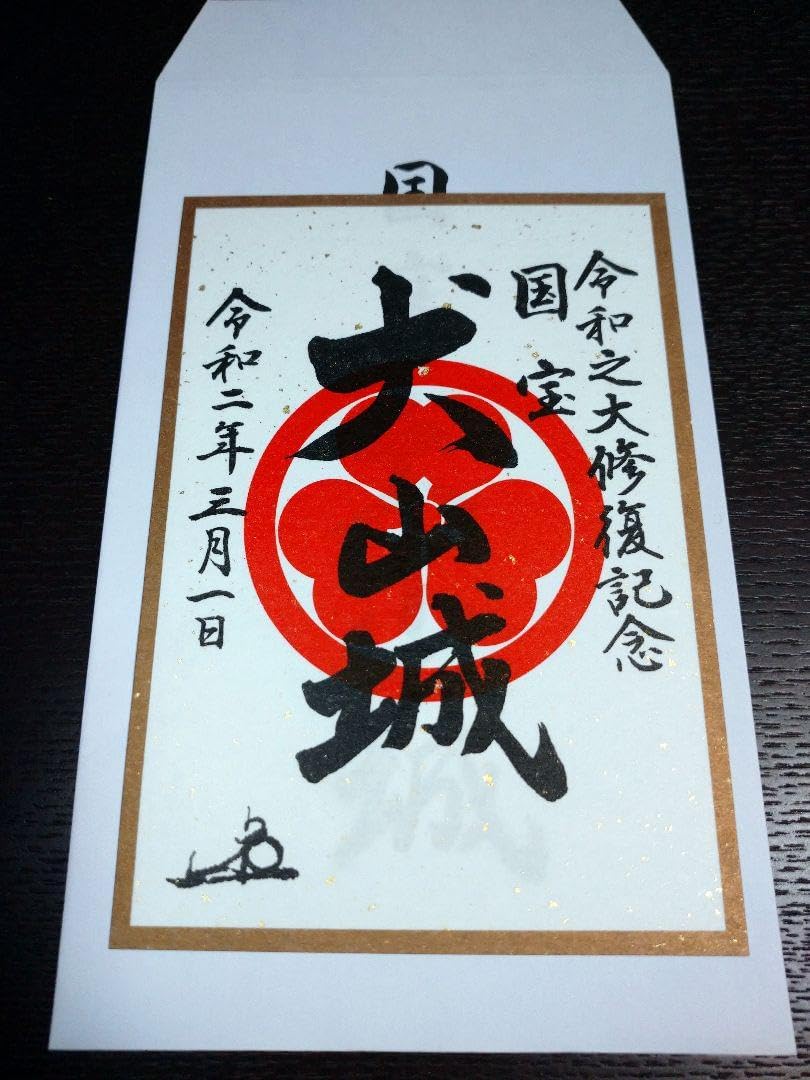 令和之大修復記念
国宝
犬山城
令和二年三月一日
国